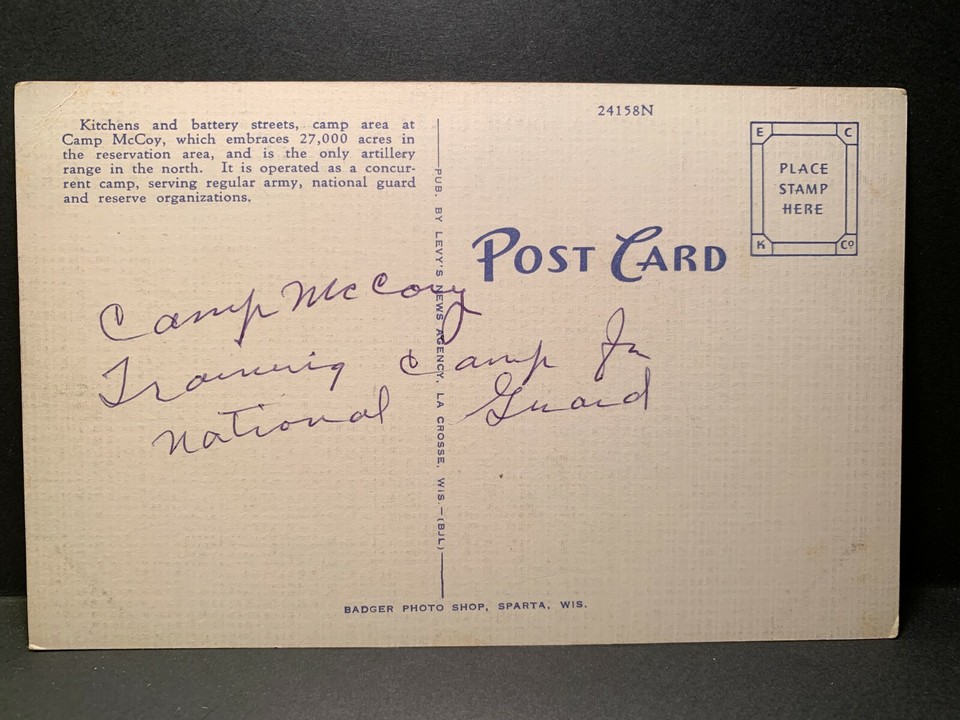 Kitchens and battery streets, camp area at
Camp McCoy, which embraces 27,000 acres in
the reservation area, and is the only artillery
range in the north. It is operated as a concur-
rent camp, serving regular army, national guard
and reserve organizations.
24158N
E C
PLACE
STAMP
HERE
K Co
POST CARD
PUB. BY LEVY'S NEWS AGENCY, LA CROSSE, WIS.—(BJL)
Camp McCoy
Training Camp
National Guard
BADGER PHOTO SHOP, SPARTA, WIS.